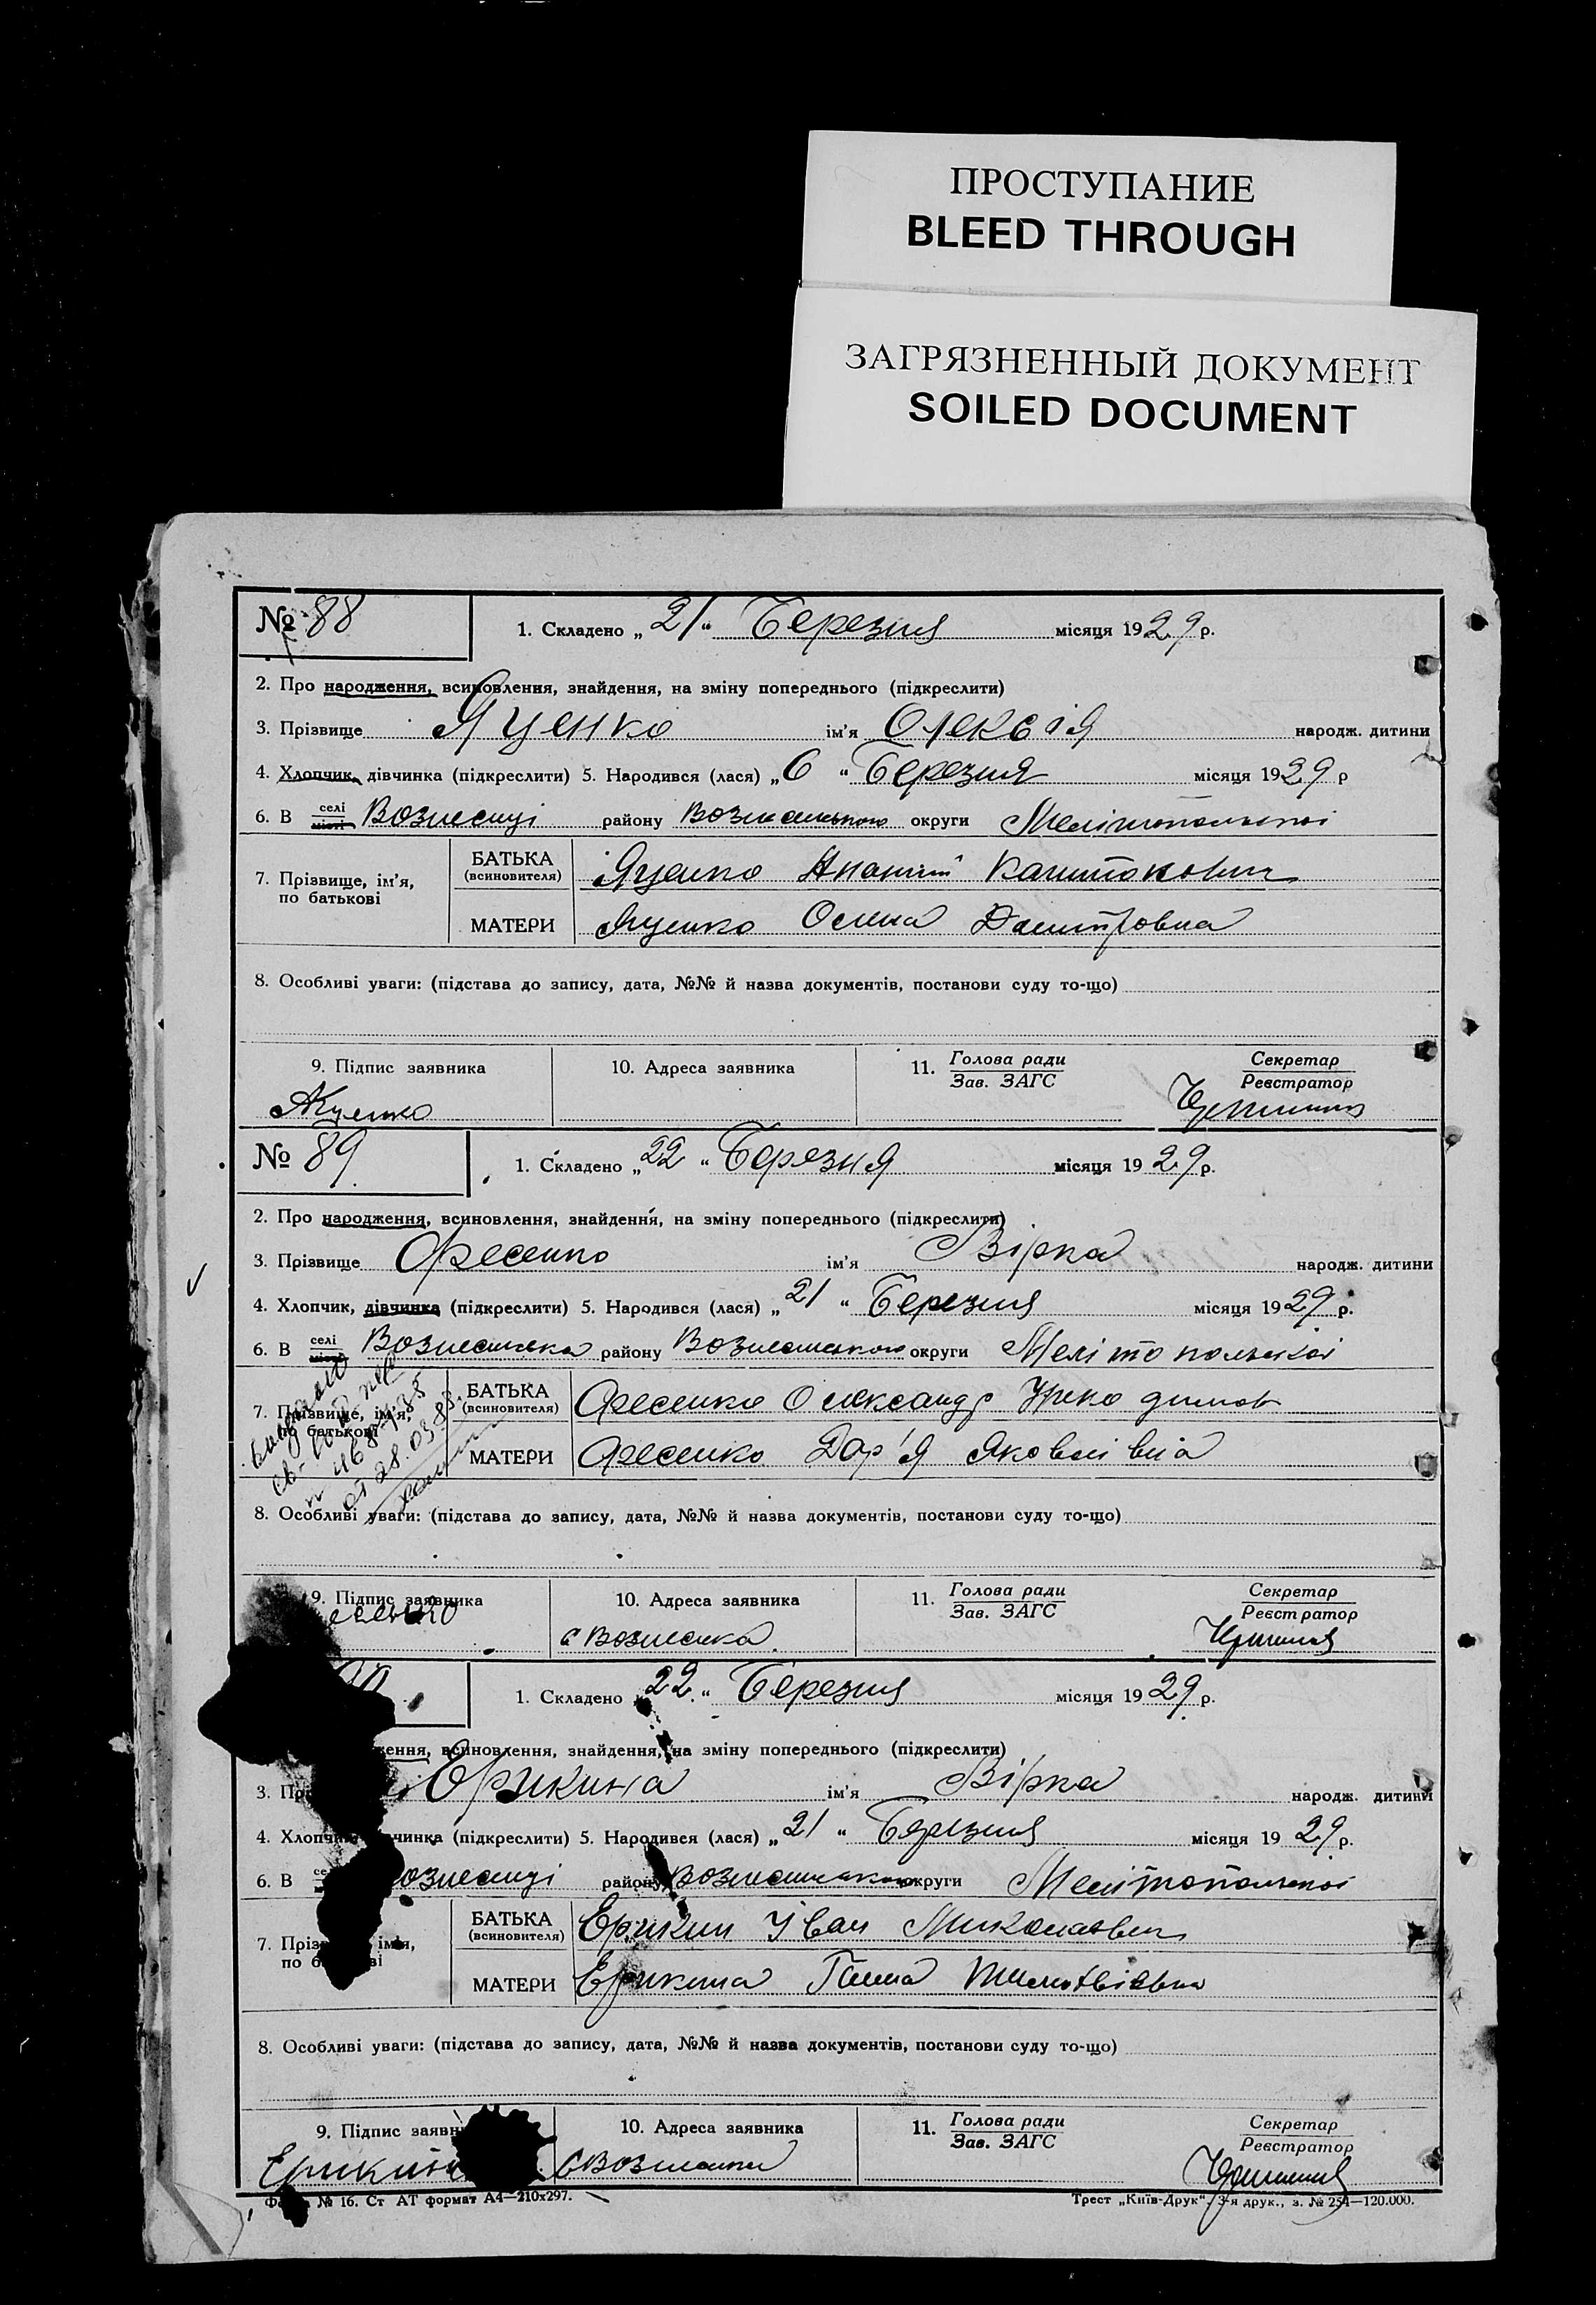 ПРОСТУПАНИЕ
BLEED THROUGH
ЗАГРЯЗНЕННЫЙ ДОКУМЕНТ
SOILED DOCUMENT
№ 88 1. Складено „21“ Березня місяця 1929 р.
2. Про народження, всиновлення, знайдення, на зміну попереднього (підкреслити)
3. Прізвище Яценко ім'я Олексія народж. дитини
4. Хлопчик, дівчинка (підкреслити) 5. Народився (лася) „6“ Березня місяця 1929 р
6. В селі місті Вознесенці району Вознесенського округи Мелітопольскоі
7. Прізвище, ім'я, по батькові
БАТЬКА (всиновителя) Яценко
МАТЕРИ Яценко Олена Дмитровна
8. Особливі уваги: (підстава до запису, дата, №№ й назва документів, постанови суду то-що)
9. Підпис заявника 10. Адреса заявника 11. Голова ради Зав. ЗАГС Секретар Реєстратор
Яценко
№ 89 1. Складено „22“ Березня місяця 1929 р.
2. Про народження, всиновлення, знайдення, на зміну попереднього (підкреслити)
3. Прізвище Фесенко ім'я Вірка народж. дитини
4. Хлопчик, дівчинка (підкреслити) 5. Народився (лася) „21“ Березня місяця 1929 р.
6. В селі Вознесенка району Вознесенського округи Мелітопольскоі
7. Прізвище, ім'я, по батькові
БАТЬКА (всиновителя) Фесенко Олександр
МАТЕРИ Фесенко Дар'я Яковлівна
от 28.03.83
8. Особливі уваги: (підстава до запису, дата, №№ й назва документів, постанови суду то-що)
9. Підпис заявника 10. Адреса заявника 11. Голова ради Зав. ЗАГС Секретар Реєстратор
с Вознесенка
1. Складено „22“ Березня місяця 1929 р.
всиновлення, знайдення, на зміну попереднього (підкреслити)
3. Ерикина ім'я Вірка народж. дитини
4. (підкреслити) 5. Народився (лася) „21“ Березня місяця 1929 р.
6. В району Вознесенського округи Мелітопольскоі
7. ім'я, по
БАТЬКА (всиновителя) Ерикин Іван Миколаевич
МАТЕРИ Ерикина Ганна
8. Особливі уваги: (підстава до запису, дата, №№ й назва документів, постанови суду то-що)
9. Підпис 10. Адреса заявника 11. Голова ради Зав. ЗАГС Секретар Реєстратор
с Вознесенка
№ 16. Ст АТ формат А4—210х297. Трест „Київ-Друк“, 3-я друк., з. № 254—120.000.